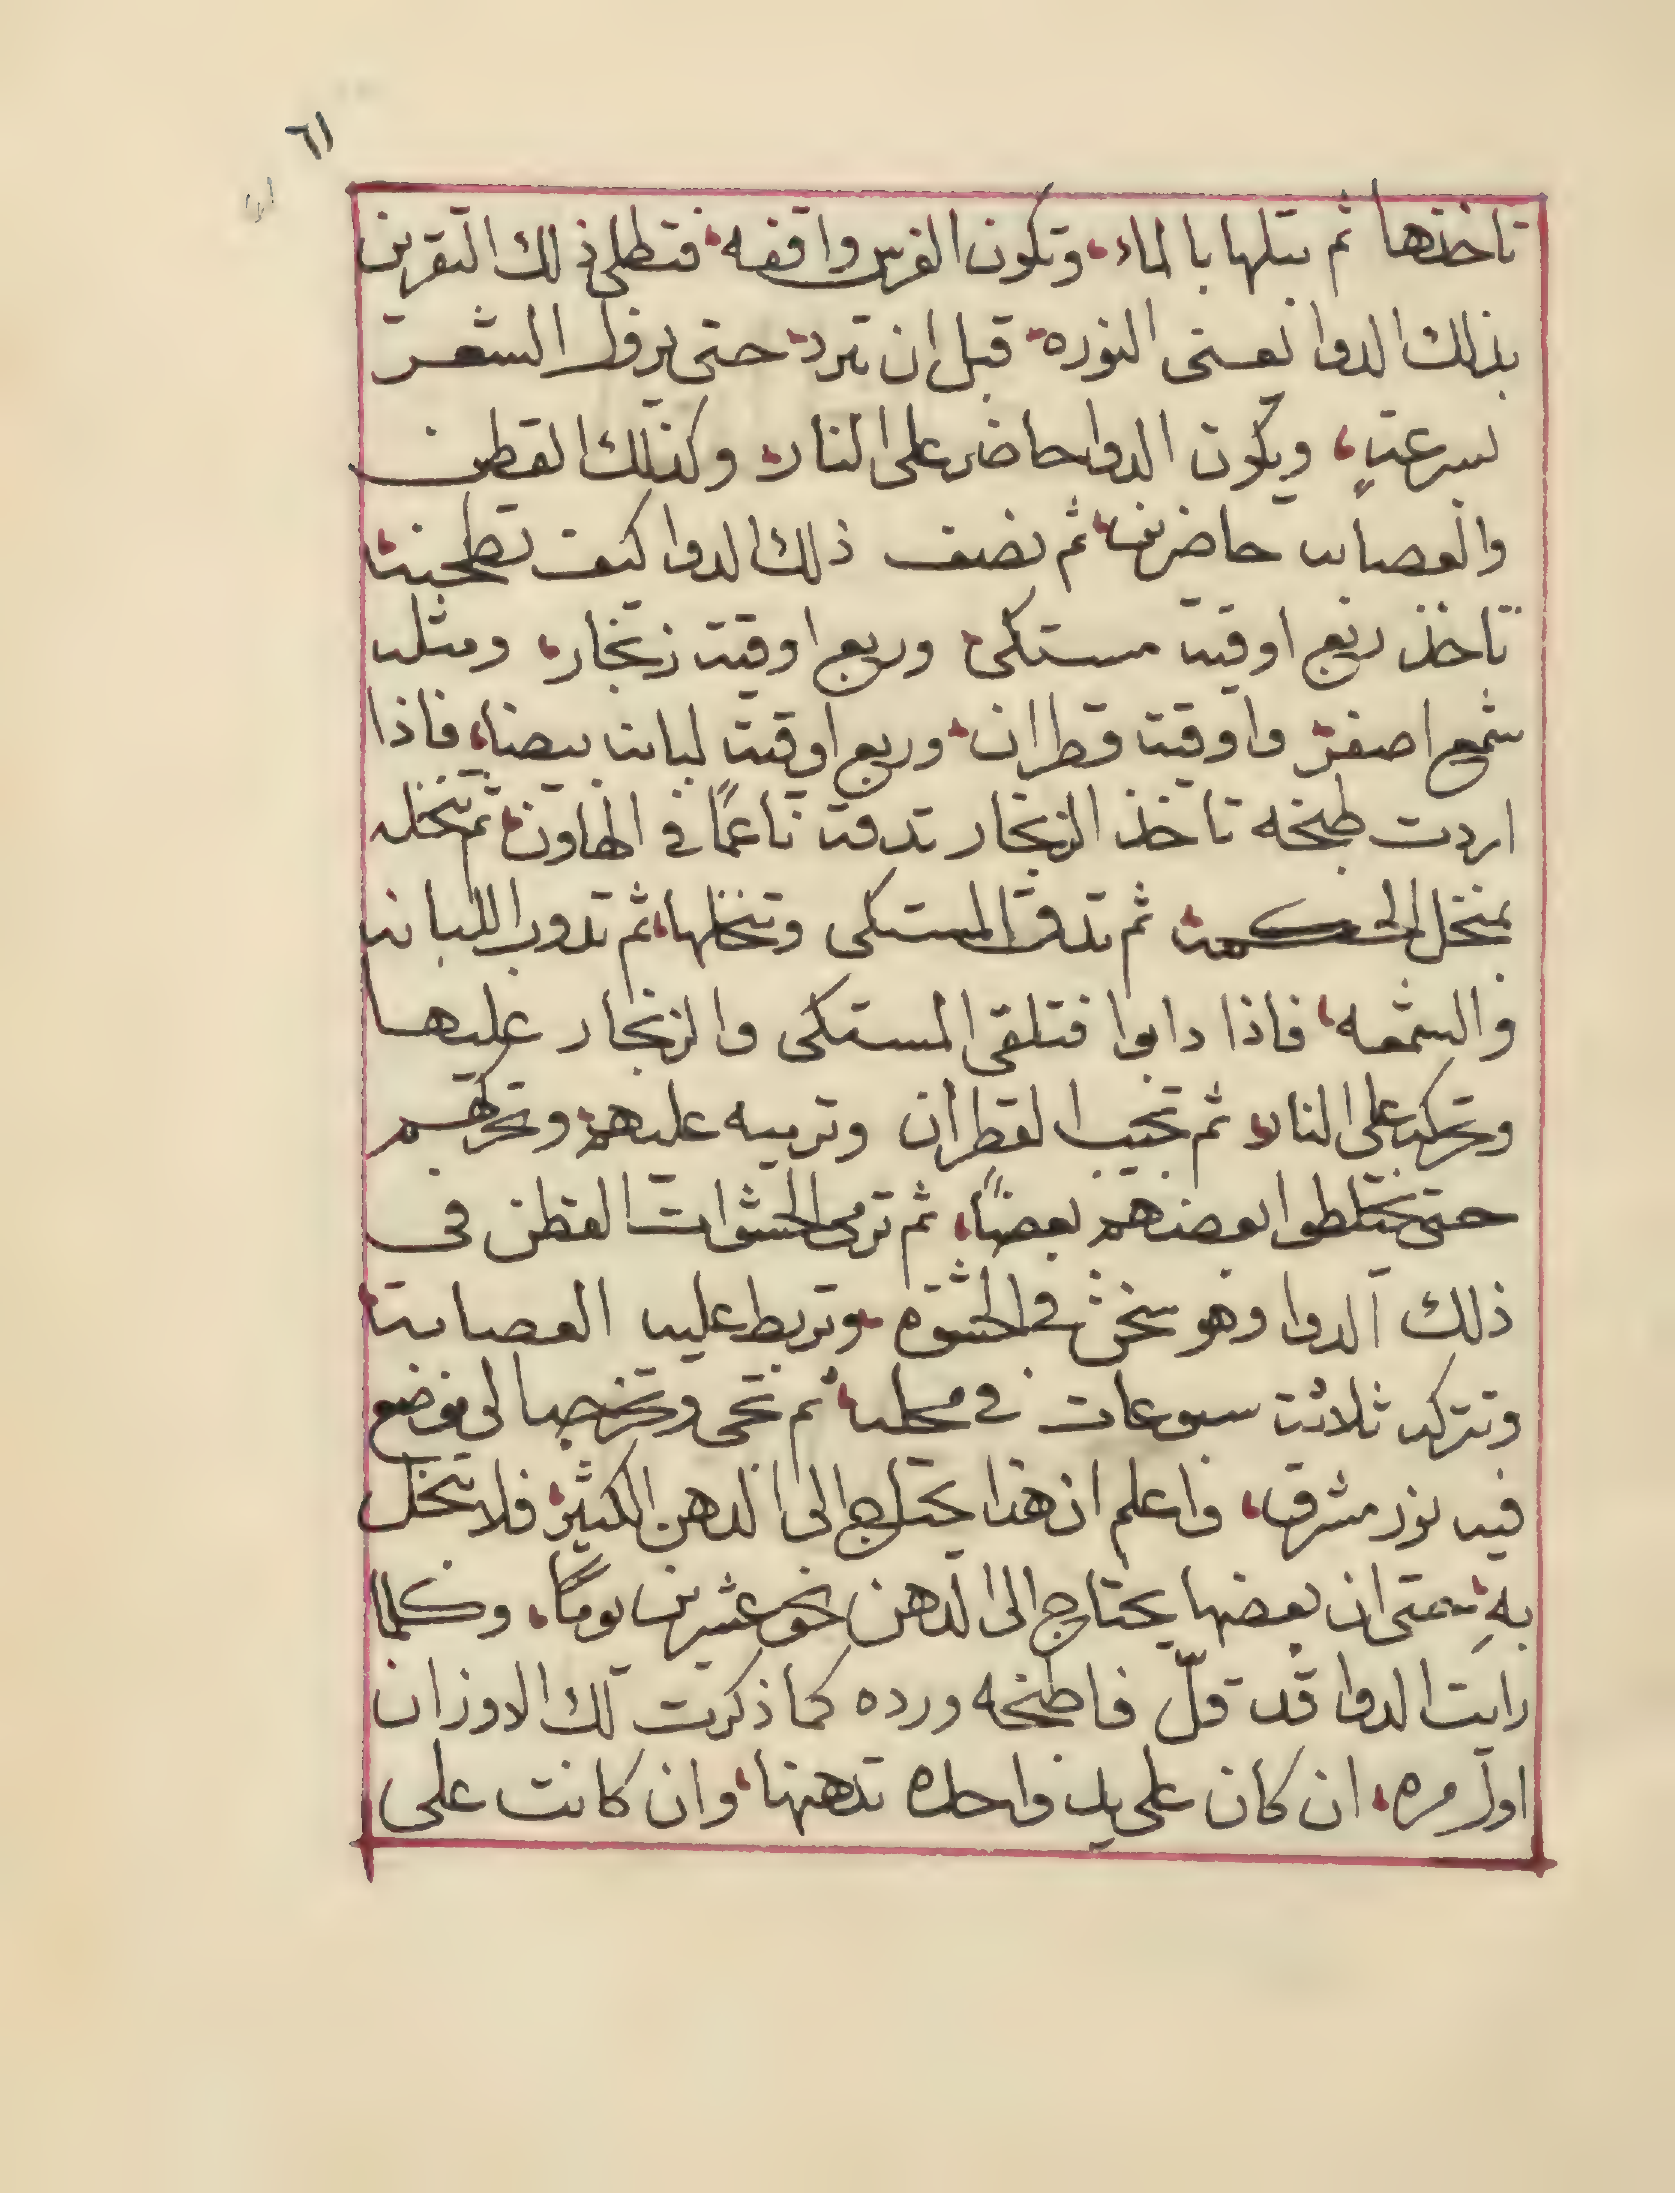 ٦١
تاخذها ثم تبلها بالماء، وتكون الفرس واقفه، فتطلي ذلك التقرين
بذلك الدوا يعنى النوره، قبل ان تبرد، حتى يزول الشعر
بسرعةٍ، ويكون الدوا حاضر على النار، وكذلك القطن
والعصايب حاضرين، ثم نصف ذلك الدوا كيف تطبخه،
تاخذ ربع اوقية مستكى، وربع اوقية زنجار، ومثله
شمع اصفر، واوقية قطران، وربع اوقية لبانه بيضا، فاذا
اردت طبخه تاخذ الزنجار تدقه ناعمًا في الهاون، ثم تنخله
بمنخل الحكمه، ثم تدق المستكى وتنخلها، ثم تدوب اللبانه
والشمعه، فاذا دابوا فتلقى المستكى والزنجار عليها
وتحركه على النار، ثم تجيب القطران وترميه عليهم، وتحركهم
حتى يختلطوا بعضهم بعضًا، ثم ترمى الحشوات القطن فى
ذلك الدوا وهو سخن في الحشوه، وتربط عليه العصابه،
وتتركه ثلاثة سبوعات في محله، ثم تنحى وتخرجه الى موضع
فيه نور مشرق، واعلم ان هذا يحتاج الى الدهن الكثير، فلا تبخل
بهِ، حتى ان بعضها يحتاج الى الدهن نحو عشرين يومًا، وكلما
رايت الدوا قد قلّ فاطبخه ورده كما ذكرت لك الاوزان
اول مره، ان كان على يد واحده تدهنها، وان كانت على